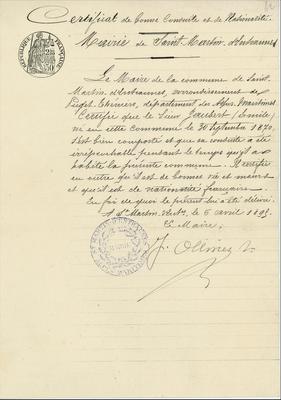 Certificat de Bonne Conduite et de Nationalité
Mairie de Saint Martin d'Entraunes
RÉPUBLIQUE FRANÇAISE
Le Maire de la commune de Saint
Martin d'Entraunes, arrondissement de
Puget-Théniers, département des Alpes Maritimes
Certifie que le Sieur (Emile)
né en cette commune le 30 Septembre 1870,
s'est bien comporté et que sa conduite a été
irréprochable pendant le temps qu'il a
habité la présente commune. Il certifie
en outre qu'il est de bonnes vie et mœurs
et qu'il est de nationalité française.
En foi de quoi le présent lui a été délivré.
A St Martin d'Ent. le 6 avril
Le Maire,
J. Ollivier